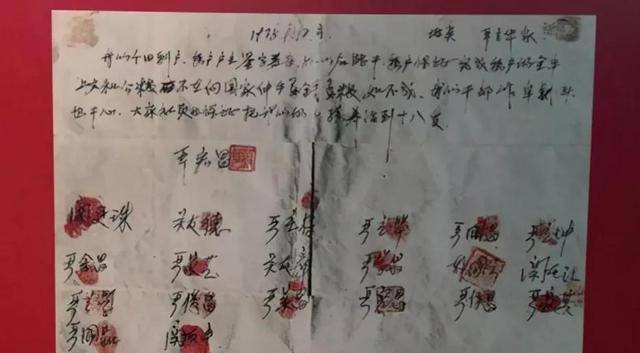 1978年12月 地点 严立华家
我们分田到户,每户户主签字盖章,如以后能干,每户保证完成每户的全年
上交和公粮 不在向国家伸手要钱要粮,如不成,我们干部作牢刹头
也干心,大家社员也保证把我们的小孩养活到十八岁。
严宏昌
关廷珠 关友德 严立符 严立华 严国昌 严立坤
严金昌 严家芝 关友章 严学昌 韩国云 关友江
严立学 严俊昌 严美昌 严宏昌 严付昌 严家其
严国品 关友申